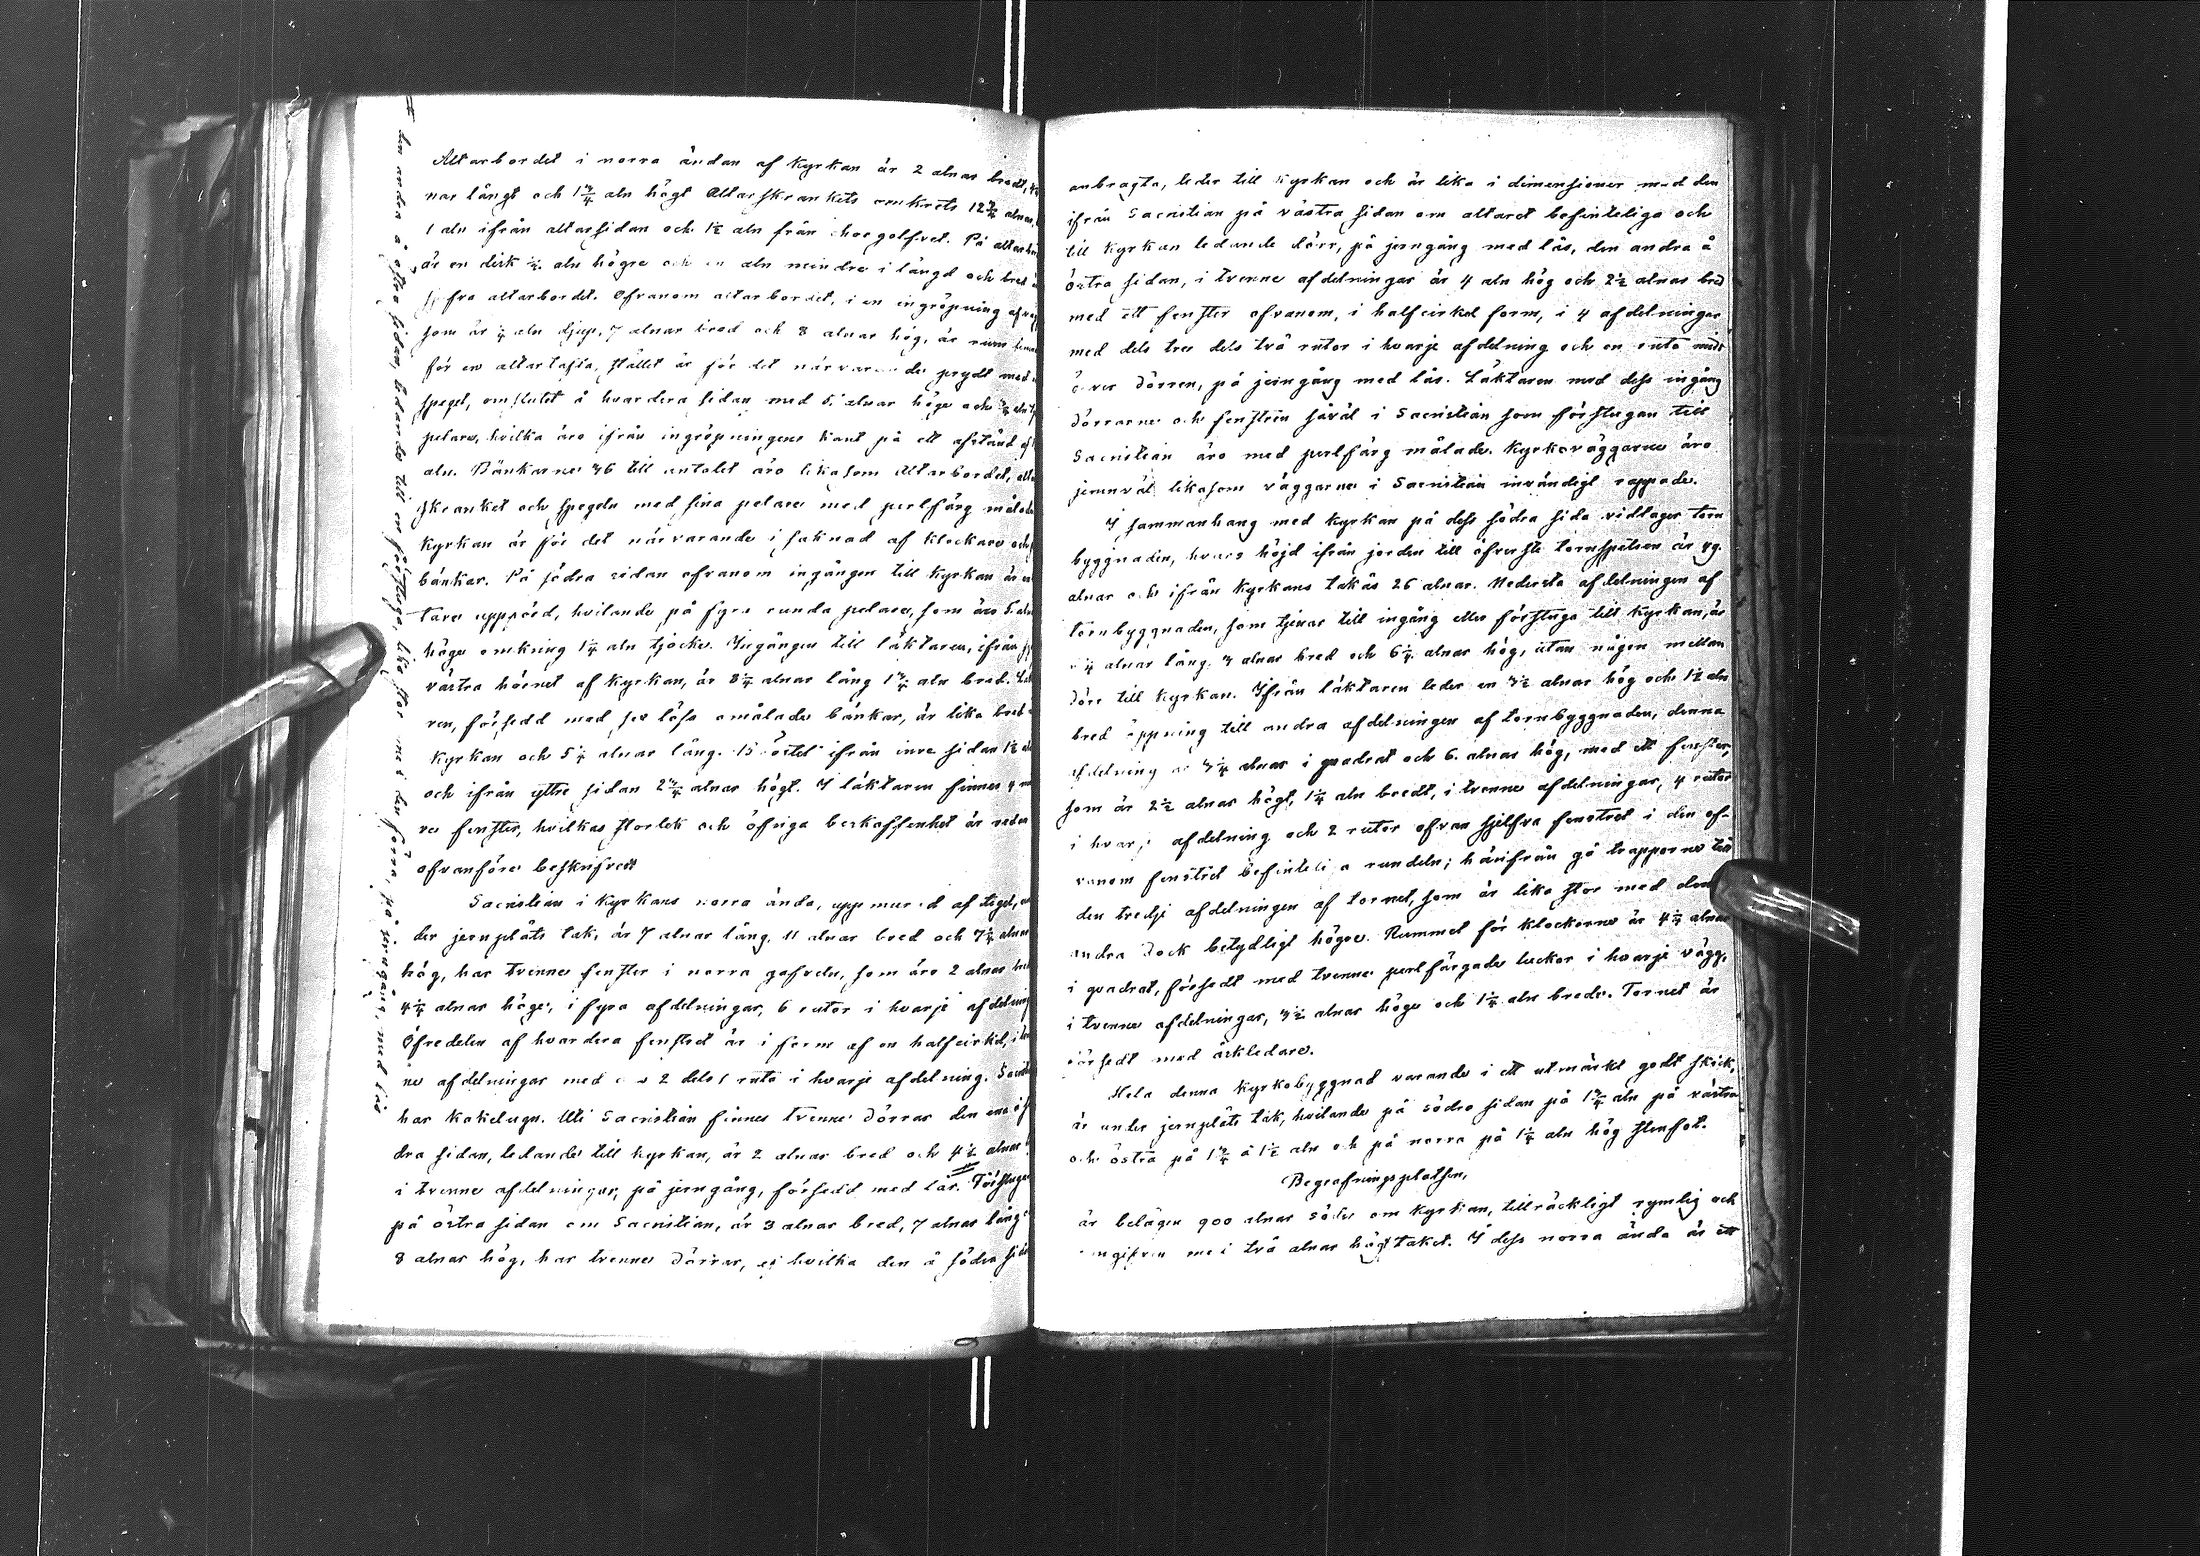 Altarbordet i norra ändan af Kyrkan är 2 alnar bredt,
nar långt och 1 3/4 aln högt Altarskrankets omkrets 12 3/4 alnar,
1 aln ifrån altarsidan och 1 1/2 aln från chorgolfvet. På
är en disk aln högre och en aln mindre i längd och
fra altarbordet. Ofvanom altarbordet, i en ingröpning
som är 1/4 aln djup, 7 alnar bred och 8 alnar hög, är
för en altartafla, stället är för det närvarande prydt med
spegel, omslutet å hvardera sidan med 5. alnar höga och
pelare, hvilka äro ifrån ingröpningens kant på ett afstånd
aln. Bänkarne 36 till antalet äro likasom Altarbordet,
skranket och spegeln med sina pelare med perlfärg
Kyrkan är för det närvarande i saknad af klockare och
bänkar. På södra sidan ofvanom ingången till Kyrkan är
tare uppförd, hvilande på fyra runda pelare, som äro 5
höga omkring 1 1/4 aln tjocka. Ingången till läktaren, ifrån
västra hörnet af Kyrkan, är 8 1/4 alnar lång 1 3/4 aln bred.
ren, försedd med sex lösa omålade bänkar, är lika bred
Kyrkan och 5 1/4 alnar lång. Bröstet ifrån inre sidan 1 1/2
och ifrån yttre sidan 2 3/4 alnar högt. I läktaren finnes 4
re fenster, hvilkas storlek och öfriga beskaffenhet är redan
ofvanföre beskrifvet
Sacristian i Kyrkans norra ända, uppmurad af tegel,
der jernplåts tak, är 7 alnar lång. 11 alnar bred och 7 1/2 alnar
hög, har tvenne fenster i norra gafveln, som äro 2 alnar
4 1/4 alnar höga, i fyra afdelningar, 6 rutor i hvarje afdelning
Öfredelen af hvardera fenstret är i form af en halfcirkel,
ne afdelningar med 2 dels 1 ruta i hvarje afdelning.
har kakelugn. Uti Sacristian finnes tvenne dörrar den ena å
dra sidan, ledande till kyrkan, är 2 alnar bred och 4 1/2 alnar
i tvenne afdelningar, på jerngång, försedd med lås. # Förstugan
på östra sidan om Sacristian, är 3 alnar bred, 7 alnar lång
8 alnar hög, har tvenne dörrar, af hvilka den å södra
# den andra å östra sidan, ledande till en förstuga, lika stor med den förra, på jerngång, med lås
anbragta, leder till kyrkan och är lika i dimensioner med den
ifrån Sacristian på västra sidan om altaret befinteliga och
till Kyrkan ledande dörr, på jerngång med lås, den andra å
östra sidan, i tvenne afdelningar är 4 aln hög och 2 1/2 alnar bred
med ett fenster ofvanom, i halfcirkel form, i 4 afdelningar
med dels tre dels två rutor i hvarje afdelning och en ruta midt
över dörren, på jerngång med lås. Läktaren med dess ingång
dörrarne och fenstren såväl i Sacristian som förstugan till
Sacristian äro med perlfärg målade. Kyrkoväggarne äro
jemnväl likasom väggarne i Sacristian invändigt rappade.
I sammanhang med kyrkan på dess södra sida vidtager torn
byggnaden, hvars höjd ifrån jorden till öfversta tornspetsen är 49.
alnar och ifrån Kyrkans takås 26 alnar. Nedersta afdelningen af
tornbyggnaden, som tjenar till ingång eller förstuga till Kyrkan, är
4 alnar lång. 7 alnar bred och 6 1/4 alnar hög, utan någon mellan
dörr till Kyrkan. Ifrån läktaren leder en 3 1/2 alnar hög och 1 1/2 aln
bred öppning till andra afdelningen af tornbyggnaden, denna
afdelning är 3 1/4 alnar i quadrat och 6. alnar hög, med ett fenster,
som är 2 1/2 alnar högt, 1 1/4 aln bredt, i tvenne afdelningar, 4 rutor
i hvarje afdelning och 2 rutor ofvan sjelfva fenstret i den of-
vanom fenstret befinteliga rundeln; härifrån gå trapporne till
den tredje afdelningen af tornet, som är lika stor med den
andra dock betydligt högre. Rummet för klockorne är 4 1/4 alnar
i quadrat, försedt med tvenne perlfärgade luckor i hvarje vägg,
i tvenne afdelningar, 3 1/2 alnar höga och 1 1/4 aln breda. Tornet är
försedt med åskledare.
Hela denna kyrkobyggnad varande i ett utmärkt godt skick,
är under jernplåts tak, hvilande på södra sidan på 1 3/4 aln på västra
och östra på 1 3/4 à 1 1/2 aln och på norra på 1 1/4 aln hög stenfot.
Begrafningsplatsen,
är belägen 900 alnar söder om kyrkan, tillräckligt rymlig och
omgifven med två alnar högt staket. I dess norra ända är ett